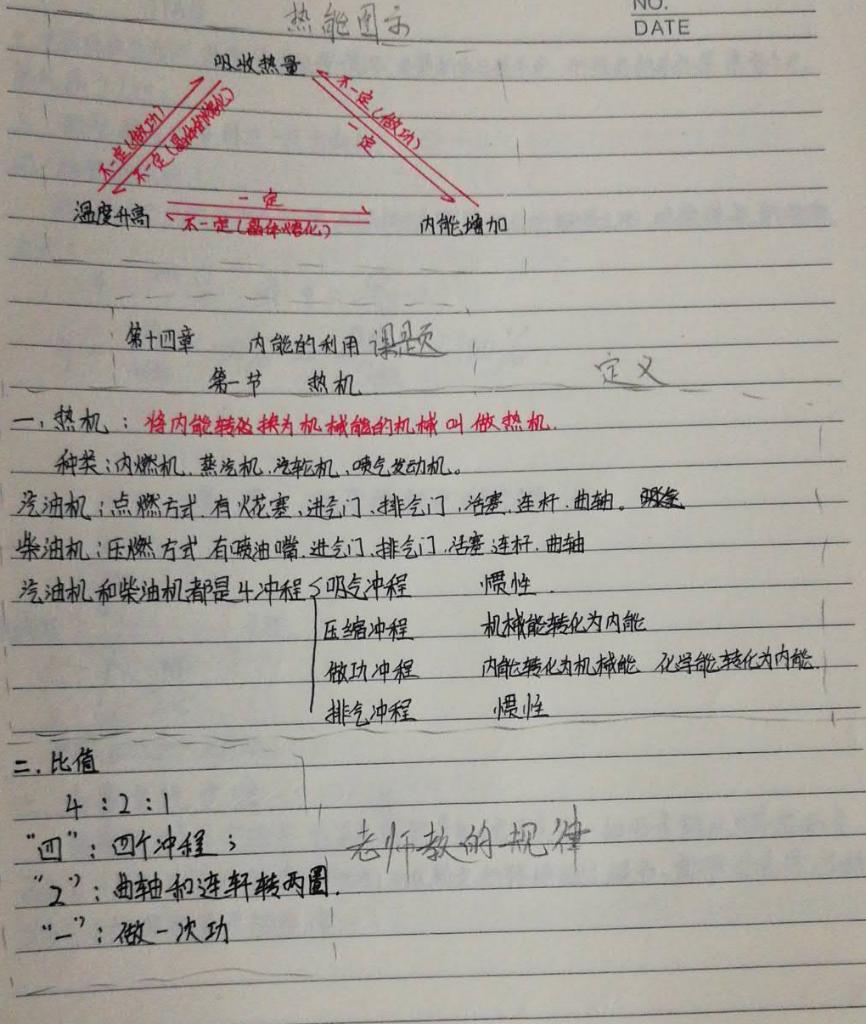 NO.
热能图示
DATE
吸收热量
不一定(做功)
不一定(晶体的熔化)
不一定(做功)
一定
一定
温度升高
不一定(晶体熔化)
内能增加
第十四章 内能的利用 课题
第一节 热机 定义
一、热机：将内能转化换为机械能的机械叫做热机.
种类：内燃机、蒸汽机、汽轮机、喷气发动机。
汽油机：点燃方式.有火花塞、进气门、排气门、活塞、连杆、曲轴。
柴油机：压燃方式 有喷油嘴.进气门、排气门、活塞 连杆、曲轴
汽油机和柴油机都是4冲程 吸气冲程 惯性.
压缩冲程 机械能转化为内能
做功冲程 内能转化为机械能 化学能转化为内能.
排气冲程 惯性
二、比值
4：2：1
"四"：四个冲程；
老师教的规律
"2"：曲轴和连轩转两圈.
"一"：做一次功